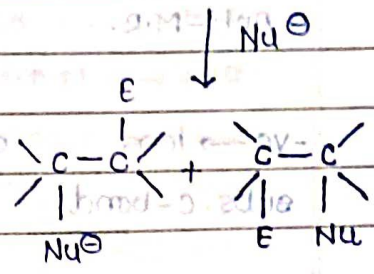 Nu⊖
E
C - C + C - C
Nu⊖ E Nu